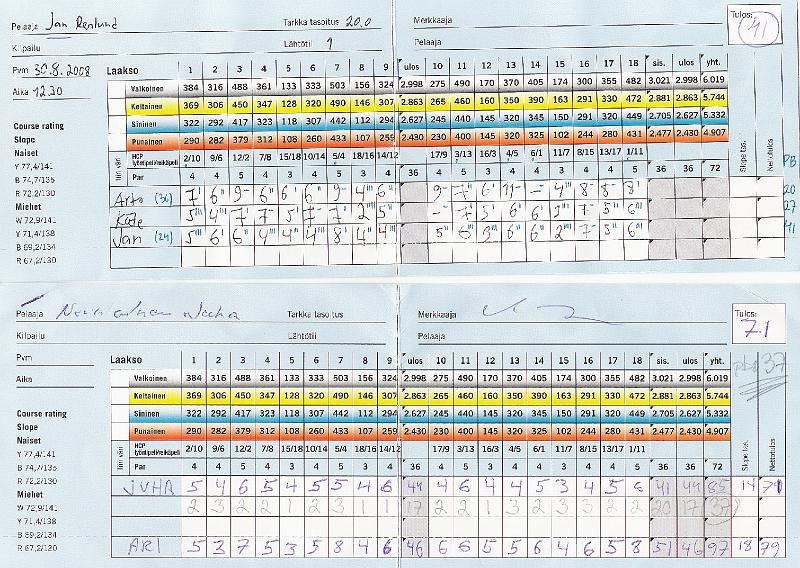 Pelaaja Jan Renlund Tarkka tasoitus 20.0 Merkkaaja Tulos: 41
Kilpailu Lähtötii 1 Pelaaja
Pvm 30.8.2008 Laakso 1 2 3 4 5 6 7 8 9 ulos 10 11 12 13 14 15 16 17 18 sis. ulos yht.
Aika 12.30 Valkoinen 384 316 488 361 133 333 503 156 324 2.998 275 490 170 370 405 174 300 355 482 3.021 2.998 6.019
Keltainen 369 306 450 347 128 320 490 146 307 2.863 265 460 160 350 390 163 291 330 472 2.881 2.863 5.744
Course rating Sininen 322 292 417 323 118 307 442 112 294 2.627 245 440 145 320 345 150 291 320 449 2.705 2.627 5.332
Slope Punainen 290 282 379 312 108 260 433 107 255 2.430 230 400 145 320 325 102 244 280 431 2.477 2.430 4.907
Naiset HCP 2/10 9/6 12/2 7/8 15/18 10/14 5/4 18/16 14/12 17/9 3/13 16/3 4/5 6/1 11/7 8/15 13/17 1/11
Y 77,4/141 Lyöntipeli/reikäpeli
B 74,7/135 Par 4 4 5 4 3 4 5 3 4 36 4 5 3 4 4 3 4 4 5 36 36 72
Tiin väri Slope tas. Nettotulos PB
R 72,2/130 Arto (36) 7 6 9 - 6 6 6 9 - 4 6 9 - 7 6 - 4 8 - 8 - 8 20
Miehet
W 72,9/141 5 4 7 7 - 5 7 - 7 2 5 - 7 5 6 6 3 7 5 6 27
Y 71,4/138 Jan (24) 5 6 6 4 4 4 8 4 4 5 6 3 6 6 2 7 - 5 6 41
B 69,2/134
R 67,2/130
Pelaaja Tarkka tasoitus Merkkaaja Tulos: 71
Kilpailu Lähtötii Pelaaja
Pvm Laakso 1 2 3 4 5 6 7 8 9 ulos 10 11 12 13 14 15 16 17 18 sis. ulos yht. 37
Aika Valkoinen 384 316 488 361 133 333 503 156 324 2.998 275 490 170 370 405 174 300 355 482 3.021 2.998 6.019
Keltainen 369 306 450 347 128 320 490 146 307 2.863 265 460 160 350 390 163 291 330 472 2.881 2.863 5.744
Course rating Sininen 322 292 417 323 118 307 442 112 294 2.627 245 440 145 320 345 150 291 320 449 2.705 2.627 5.332
Slope Punainen 290 282 379 312 108 260 433 107 255 2.430 230 400 145 320 325 102 244 280 431 2.477 2.430 4.907
Naiset HCP 2/10 9/6 12/2 7/8 15/18 10/14 5/4 18/16 14/12 17/9 3/13 16/3 4/5 6/1 11/7 8/15 13/17 1/11
Y 77,4/141 Lyöntipeli/reikäpeli
B 74,7/135 Par 4 4 5 4 3 4 5 3 4 36 4 5 3 4 4 3 4 4 5 36 36 72
Tiin väri Slope tas. Nettotulos
R 72,2/130 JUHA 5 4 6 5 4 5 5 4 6 44 4 6 4 4 5 3 4 5 6 41 44 85 14 71
Miehet
W 72,9/141 2 3 2 2 1 2 3 1 1 17 2 2 1 3 2 3 3 2 2 20 17 37
Y 71,4/138
B 69,2/134
R 67,2/130 ARI 5 3 7 5 3 5 8 4 6 46 6 6 5 5 6 4 6 5 8 51 46 97 18 79